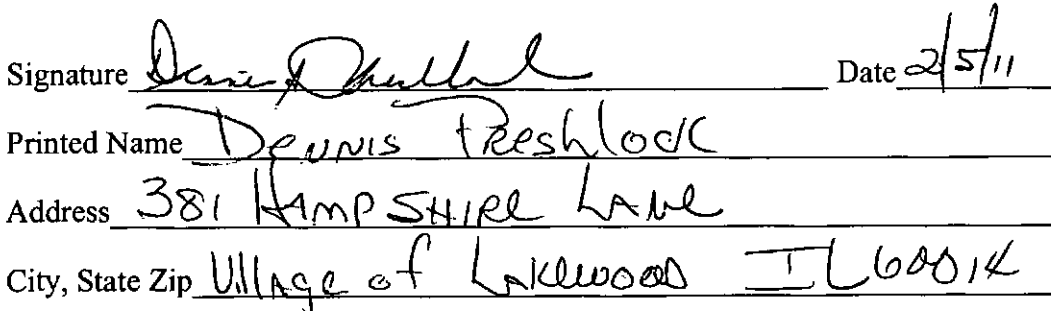 Signature Date 2/5/11
Printed Name Dennis Preshlock
Address 381 HAMPSHIRE LANE
City, State Zip Village of LAKEWOOD IL 60014